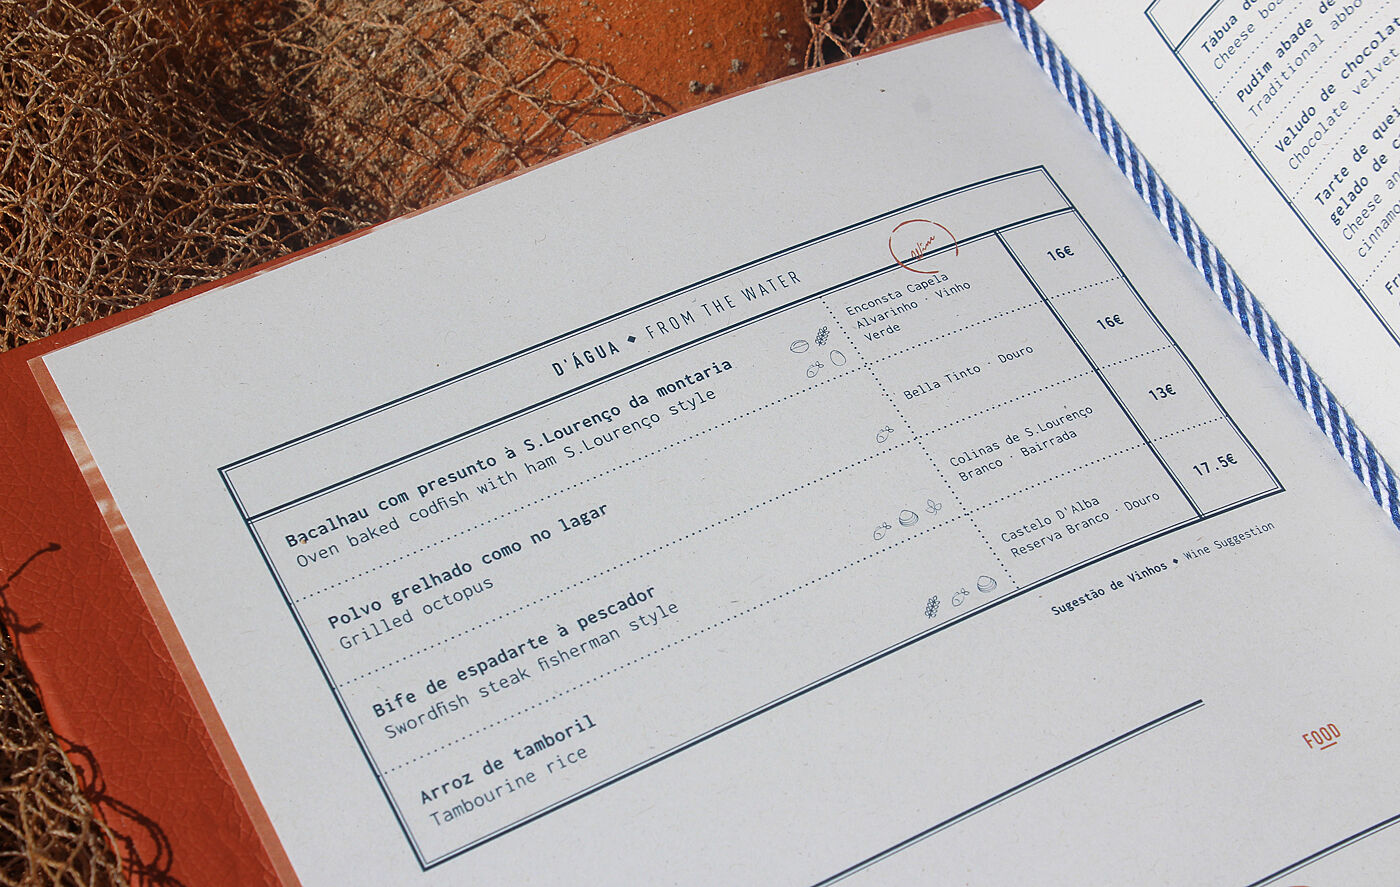 D'ÁGUA ◆ FROM THE WATER
Wine
Bacalhau com presunto à S.Lourenço da montaria
Oven baked codfish with ham S.Lourenço style
Enconsta Capela
Alvarinho · Vinho
Verde
16€
Polvo grelhado como no lagar
Grilled octopus
Bella Tinto · Douro
16€
Bife de espadarte à pescador
Swordfish steak fisherman style
Colinas de S.Lourenço
Branco · Bairrada
13€
Arroz de tamboril
Tambourine rice
Castelo D'Alba
Reserva Branco · Douro
17.5€
Sugestão de Vinhos ◆ Wine Suggestion
FOOD
Tábua
Cheese
Pudim abade de
Traditional
Veludo de chocolat
Chocolate velvet
Tarte de quei
gelado de
Cheese
cinnamo
Fr